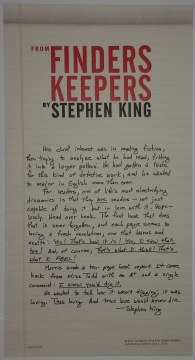 FROM
FINDERS
KEEPERS
BY STEPHEN KING
His chief interest was in reading fiction,
then trying to analyze what he had read, fitting
it into a larger pattern. He had gotten a taste
for this kind of detective work, and he wanted
to major in English more than ever.
For readers, one of life's most electrifying
discoveries is that they are readers – not just
capable of doing it but in love with it. Hope-
lessly. Head over heels. The first book that does
that is never forgotten, and each page seems to
bring a fresh revelation, one that burns and
exalts: Yes! That's how it is! Yes, I saw that,
too! And, of course, That's what I think! That's
what I FEEL!
Morris wrote a ten-page book report. It came
back from Miss Todd with an A+ and a single
comment: I knew you'd dig it.
He wanted to tell her it wasn't digging; it was
loving. True loving. And true love would never die.
—Stephen King